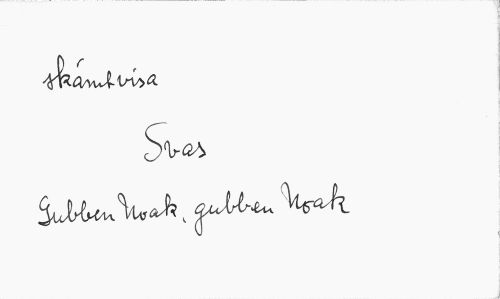 skämtvisa
Svas
Gubben Noak, gubben Noak